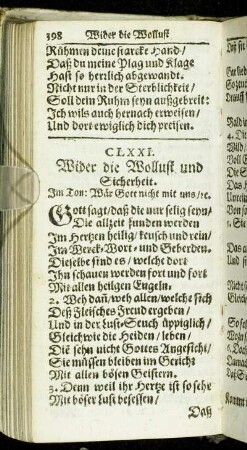 398 Wider die Wollust
Rühmen deine starcke Hand/
Daß du meine Plag und Klage
Hast so herrlich abgewandt.
Nicht nur in der Sterblichkeit/
Soll dein Ruhm seyn außgebreit:
Ich wils auch hernach erweisen/
Und dort ewiglich dich preisen.
CLXXI.
Wider die Wollust und
Sicherheit.
Im Ton: Wär Gott nicht mit uns/ꝛc.
Gott sagt/daß die nur selig seyn/
Die allzeit funden werden
Im Hertzen heilig/keusch und rein/
Im Werck-Wort- und Geberden.
Dieselbe sind es/welche dort
Ihn schauen werden fort und fort
Mit allen heilgen Engeln.
2. Weh dañ/weh allen/welche sich
Deß Fleisches Freud ergeben/
Und in der Lust-Seuch üppiglich/
Gleich wie die Heiden/leben/
Die sehn nicht Gottes Angesicht/
Sie müssen bleiben im Gericht
Mit allen bösen Geistern.
3. Denn weil ihr Hertze ist so sehr
Mit böser Lust besessen/
Daß